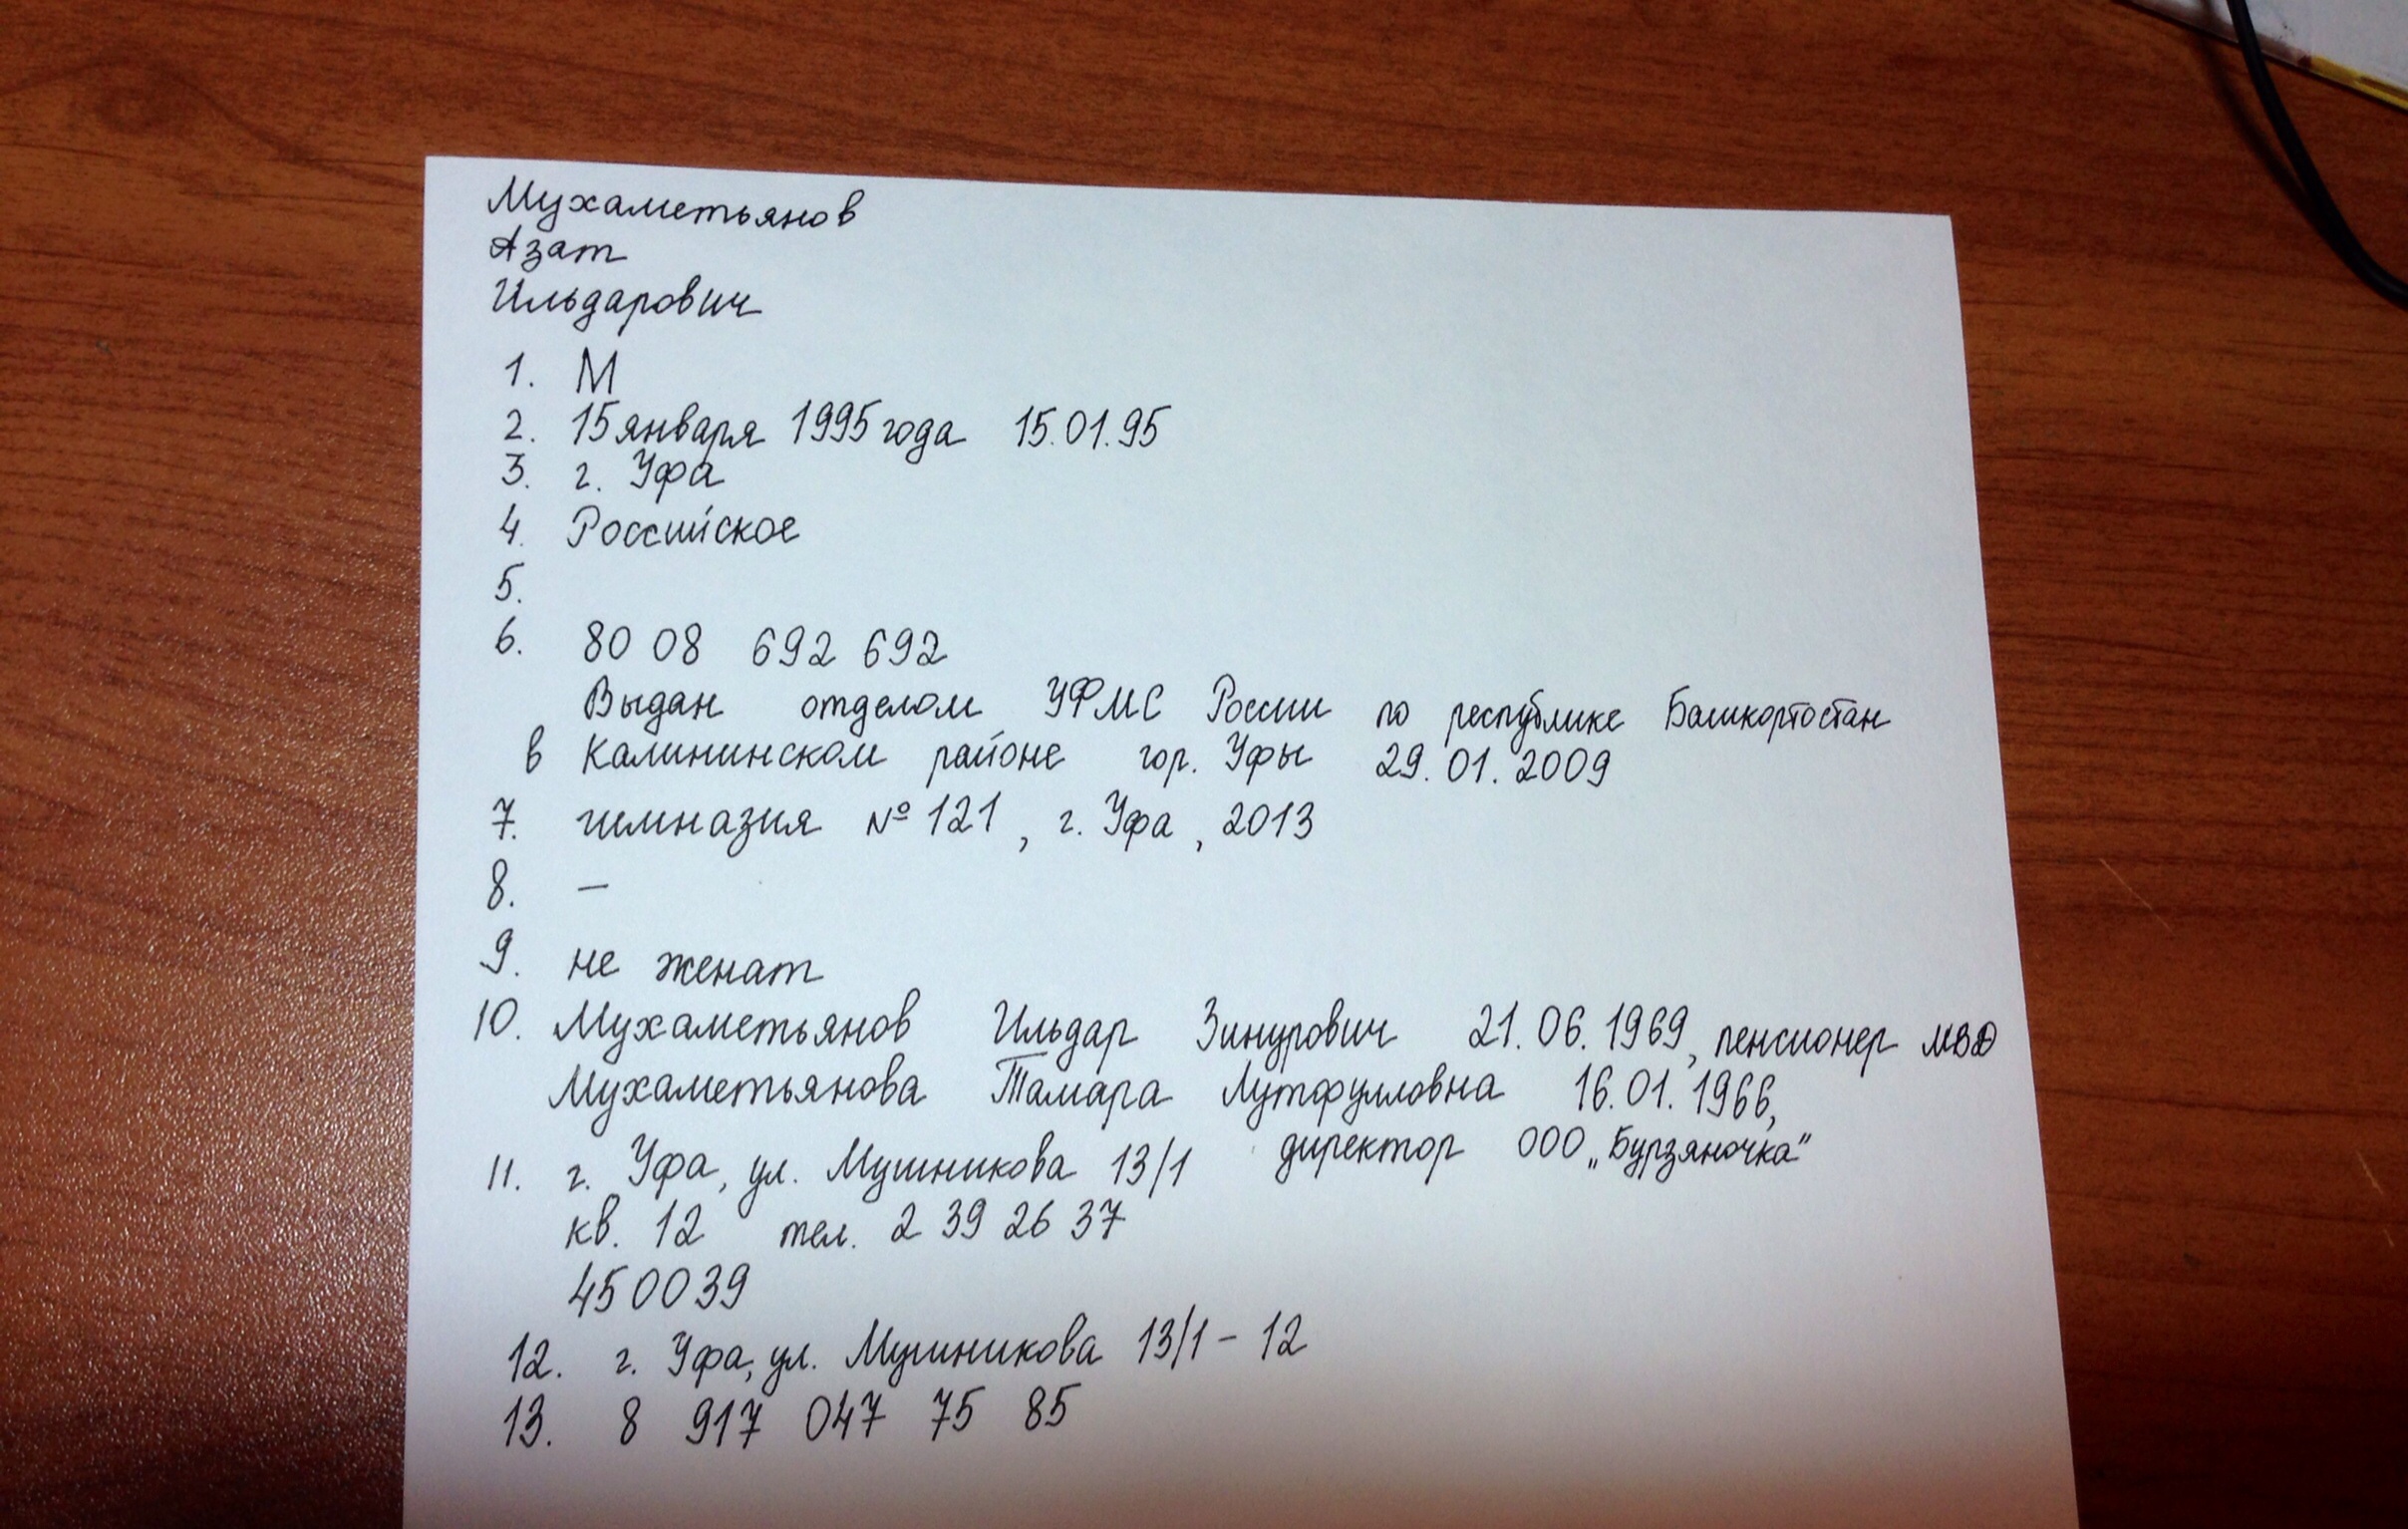 Мухаметьянов
Азат
Ильдарович
1. М
2. 15 января 1995 года 15.01.95
3. г. Уфа
4. Российское
5.
6. 80 08 692 692
Выдан отделом УФМС России по республике Башкортостан
в Калининском районе гор. Уфы 29.01.2009
7. гимназия № 121, г. Уфа, 2013
8. —
9. не женат
10. Мухаметьянов Ильдар Зинурович 21.06.1969, пенсионер МВД
Мухаметьянова Тамара Лутфулловна 16.01.1966,
директор ООО „Бурзяночка"
11. г. Уфа, ул. Мушникова 13/1
кв. 12 тел. 2 39 26 37
450039
12. г. Уфа, ул. Мушникова 13/1 - 12
13. 8 917 047 75 85